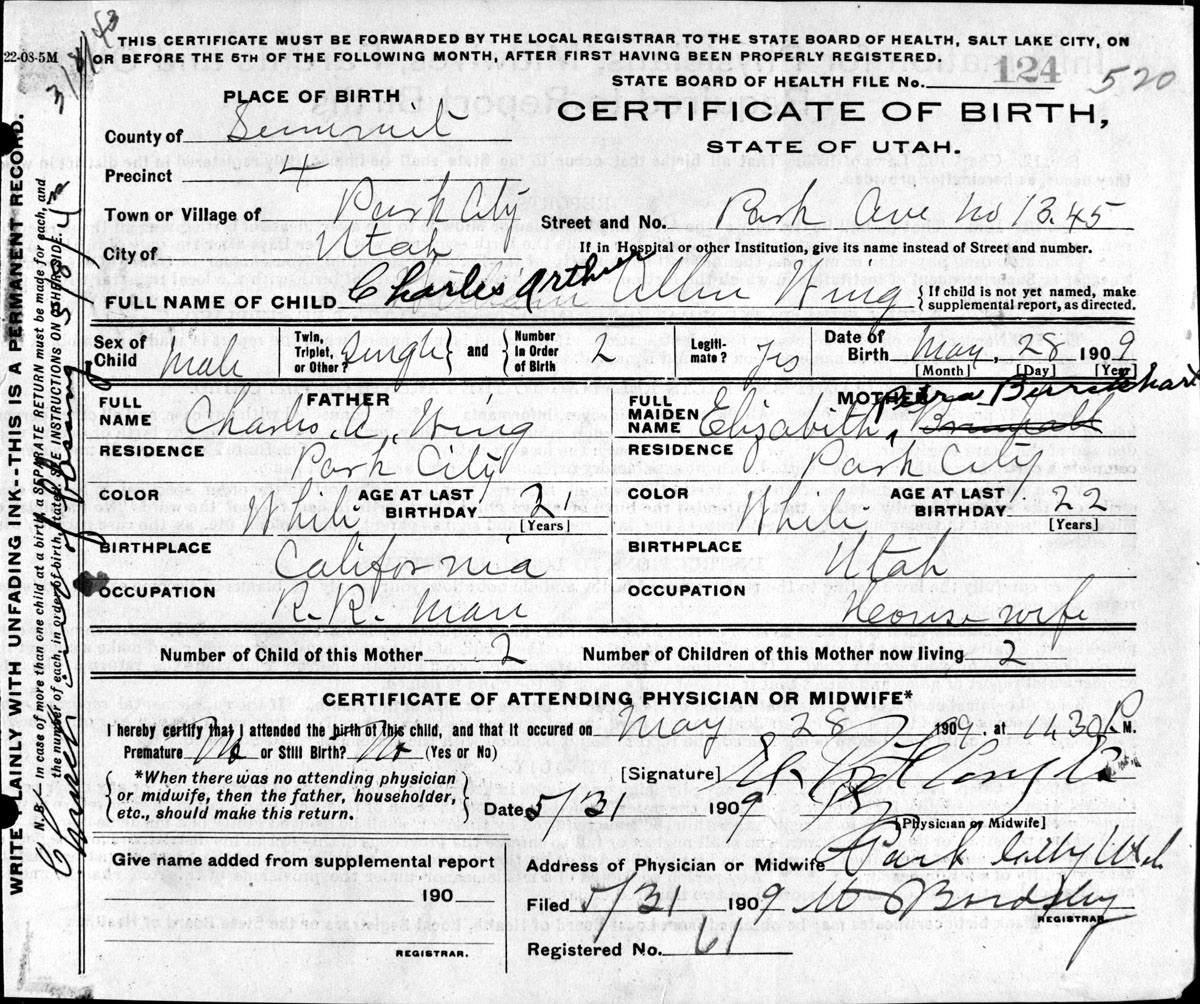 THIS CERTIFICATE MUST BE FORWARDED BY THE LOCAL REGISTRAR TO THE STATE BOARD OF HEALTH, SALT LAKE CITY, ON
22-08-5M OR BEFORE THE 5TH OF THE FOLLOWING MONTH, AFTER FIRST HAVING BEEN PROPERLY REGISTERED.
STATE BOARD OF HEALTH FILE No. 124 520
PLACE OF BIRTH
CERTIFICATE OF BIRTH,
STATE OF UTAH.
County of Summit
Precinct 4
Town or Village of Park City Street and No. Park Ave no 1345
City of Utah If in Hospital or other Institution, give its name instead of Street and number.
FULL NAME OF CHILD Charles Arthur Wing { If child is not yet named, make supplemental report, as directed.
Sex of Child Male Twin, Triplet, or Other? Single and Number in Order of Birth 2 Legitimate? yes Date of Birth May 28 1909
[Month] [Day] [Year]
FATHER
FULL NAME Charles A. Wing
RESIDENCE Park City
COLOR White AGE AT LAST BIRTHDAY 31 [Years]
BIRTHPLACE California
OCCUPATION R. R. Man
MOTHER
FULL MAIDEN NAME Elizabeth
RESIDENCE Park City
COLOR White AGE AT LAST BIRTHDAY 22 [Years]
BIRTHPLACE Utah
OCCUPATION House wife
Number of Child of this Mother 2 Number of Children of this Mother now living 2
CERTIFICATE OF ATTENDING PHYSICIAN OR MIDWIFE*
I hereby certify that I attended the birth of this child, and that it occured on May 28 1909, at P M.
Premature No or Still Birth? No (Yes or No)
*When there was no attending physician
or midwife, then the father, householder,
etc., should make this return.
[Signature]
Date 5/31 1909
[Physician or Midwife]
Give name added from supplemental report
190
REGISTRAR.
Address of Physician or Midwife Park City Utah
Filed 5/31 1909
REGISTRAR
Registered No. 61
WRITE PLAINLY WITH UNFADING INK--THIS IS A PERMANENT RECORD.
N. B.—In case of more than one child at a birth, a SEPARATE RETURN must be made for each, and
the number of each, in order of birth, stated. SEE INSTRUCTIONS ON OTHER SIDE.